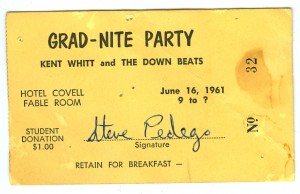 GRAD-NITE PARTY
KENT WHITT and THE DOWN BEATS
HOTEL COVELL
FABLE ROOM
June 16, 1961
9 to ?
Nº 32
STUDENT
DONATION
$1.00
Steve Pedego
Signature
RETAIN FOR BREAKFAST —